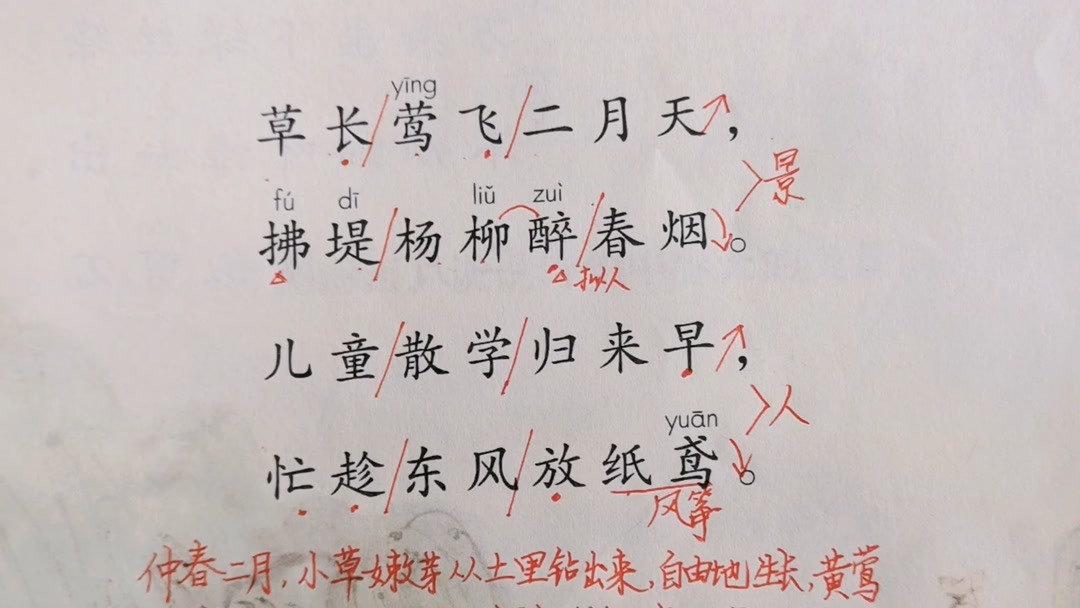 yīng
草长莺飞二月天，
景
fú dī liǔ zuì
拂堤杨柳醉春烟。
拟人
儿童散学归来早，
人
yuān
忙趁东风放纸鸢。
风筝
仲春二月，小草嫩芽从土里钻出来，自由地生长，黄莺